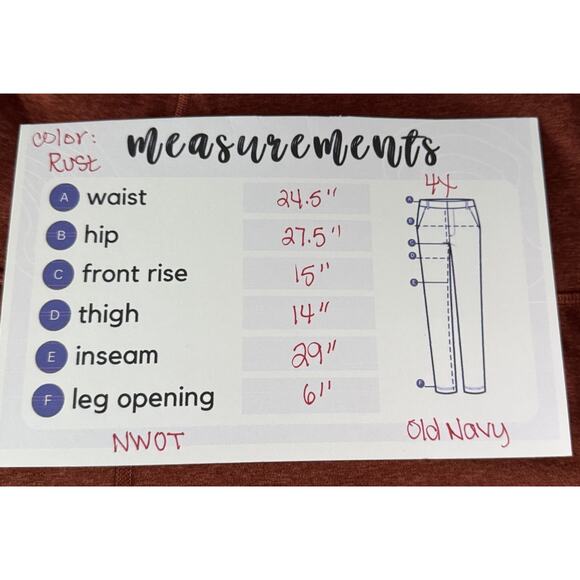 color:
Rust
measurements
4X
A waist 24.5"
B hip 27.5"
C front rise 15"
D thigh 14"
E inseam 29"
F leg opening 6"
A
B
C
D
E
F
NWOT
Old Navy